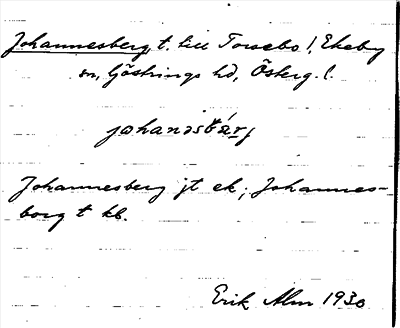 Johannesberg, t. till Torsebo!, Ekeby
sn, Göstrings hd, Österg. l.
johanəsbárj
Johannesberg jt ek; Johannes-
borg t kb.
Erik Alm 1930